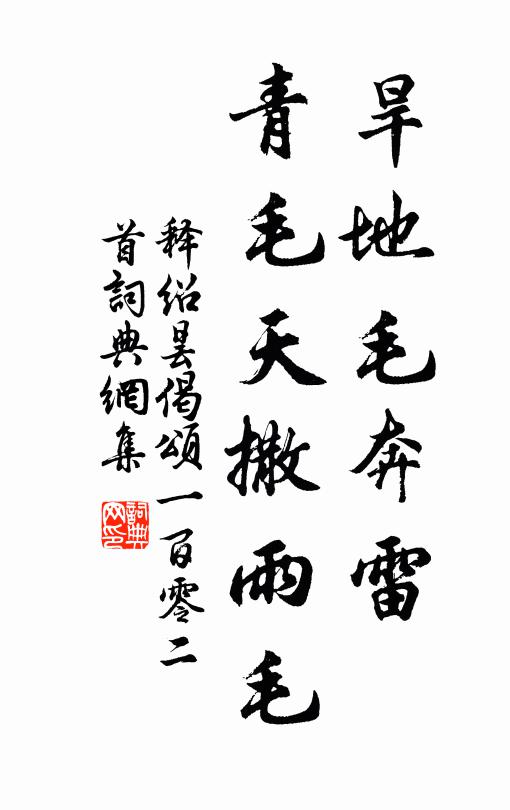 旱地毛奔雷
青毛天撒雨毛
释绍昙偈頌一百零二
首詞典網集
詞典
网印